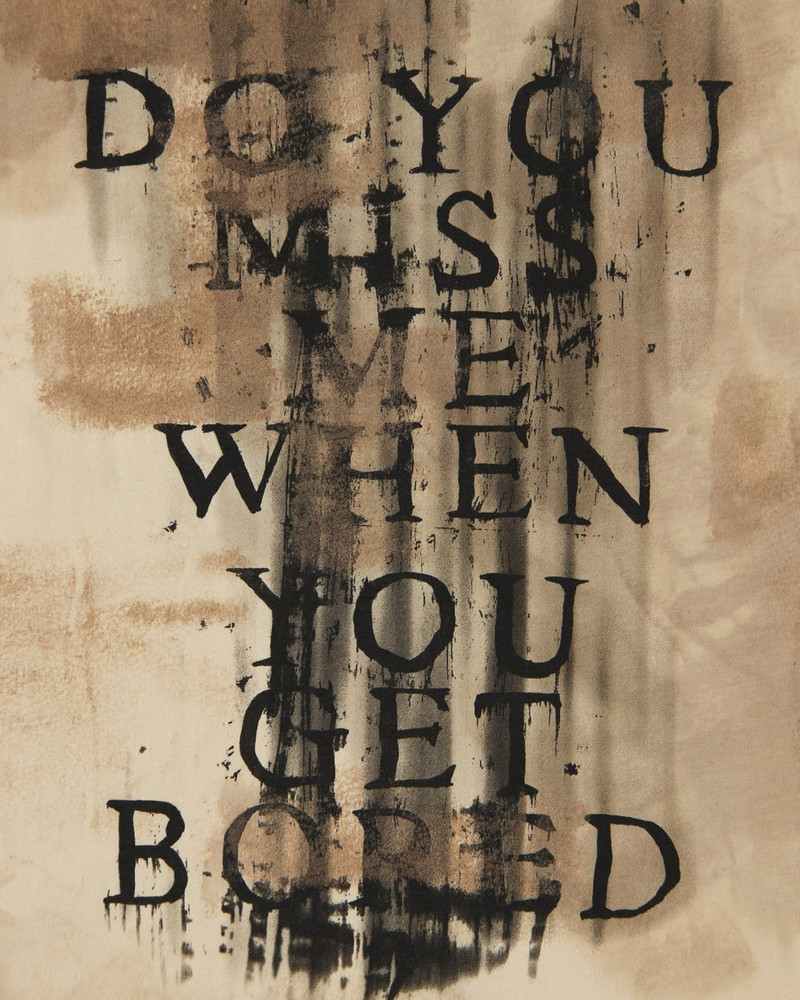 DO YOU
MISS
ME
WHEN
YOU
GET
BORED
?